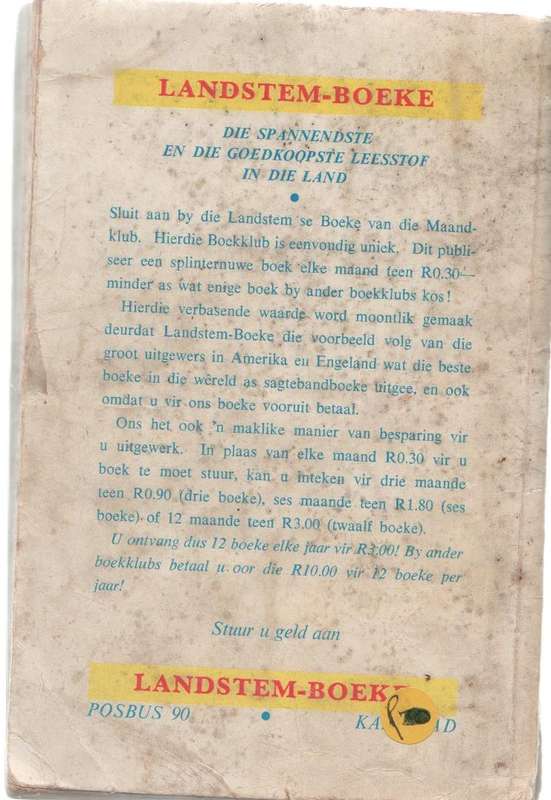 LANDSTEM-BOEKE
DIE SPANNENDSTE
EN DIE GOEDKOOPSTE LEESSTOF
IN DIE LAND
Sluit aan by die Landstem se Boeke van die Maand-
klub. Hierdie Boekklub is eenvoudig uniek. Dit publi-
seer een splinternuwe boek elke maand teen R0.30—
minder as wat enige boek by ander boekklubs kos!
Hierdie verbasende waarde word moontlik gemaak
deurdat Landstem-Boeke die voorbeeld volg van die
groot uitgewers in Amerika en Engeland wat die beste
boeke in die wêreld as sagtebandboeke uitgee, en ook
omdat u vir ons boeke vooruit betaal.
Ons het ook 'n maklike manier van besparing vir
u uitgewerk. In plaas van elke maand R0.30 vir u
boek te moet stuur, kan u inteken vir drie maande
teen R0.90 (drie boeke), ses maande teen R1.80 (ses
boeke) of 12 maande teen R3.00 (twaalf boeke).
U ontvang dus 12 boeke elke jaar vir R3.00! By ander
boekklubs betaal u oor die R10.00 vir 12 boeke per
jaar!
Stuur u geld aan
LANDSTEM-BOEKE
POSBUS 90